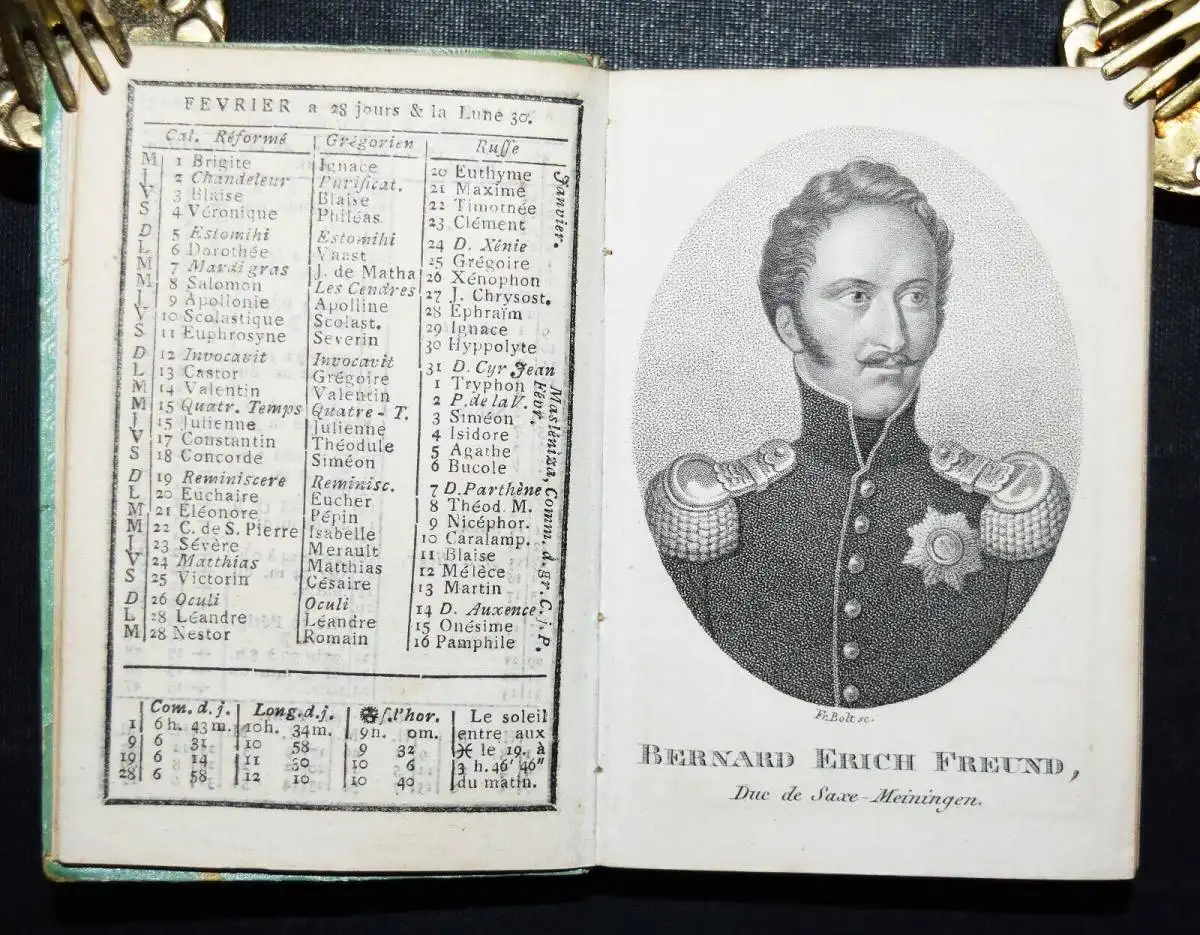 FEVRIER a 28 jours & la Lune 30.
Cal. Réformé Grégorien Ruſſe
M 1 Brigite Ignace 20 Euthyme
J 2 Chandeleur Purificat. 21 Maxime
V 3 Blaise Blaise 22 Timotnée
S 4 Véronique Philéas 23 Clément
D 5 Estomihi Estomihi 24 D. Xénie
L 6 Dorothée Vaast 25 Grégoire
M 7 Mardi gras J. de Matha 26 Xénophon
M 8 Salomon Les Cendres 27 J. Chrysost.
J 9 Apollonie Apolline 28 Ephraïm
V 10 Scolastique Scolast. 29 Ignace
S 11 Euphrosyne Severin 30 Hyppolyte
D 12 Invocavit Invocavit 31 D. Cyr Jean
L 13 Castor Grégoire 1 Tryphon
M 14 Valentin Valentin 2 P. de la V.
M 15 Quatr. Temps Quatre-T. 3 Siméon
J 15 Julienne Julienne 4 Isidore
V 17 Constantin Théodule 5 Agathe
S 18 Concorde Siméon 6 Bucole
D 19 Reminiscere Reminisc. 7 D. Parthène
L 20 Euchaire Eucher 8 Théod. M.
M 21 Eléonore Pépin 9 Nicéphor.
M 22 C. de S. Pierre Isabelle 10 Caralamp.
J 23 Sévère Merault 11 Blaise
V 24 Matthias Matthias 12 Mélèce
S 25 Victorin Césaire 13 Martin
D 26 Oculi Oculi 14 D. Auxence
L 28 Léandre Léandre 15 Onésime
M 28 Nestor Romain 16 Pamphile
Janvier.
Févr.
Masléniza, Comm. d. gr. C. j. P.
Com. d. j. Long. d. j. ſ. l'hor. Le soleil
1 6 h. 43 m. 10h. 34m. 9h. 0m. entre aux
9 6 31 10 58 9 32 ♓ le 19. à
19 6 14 11 30 10 6 3 h. 46' 46"
28 6 58 12 10 10 40 du matin.
Fr. Bolt sc.
BERNARD ERICH FREUND,
Duc de Saxe-Meiningen.